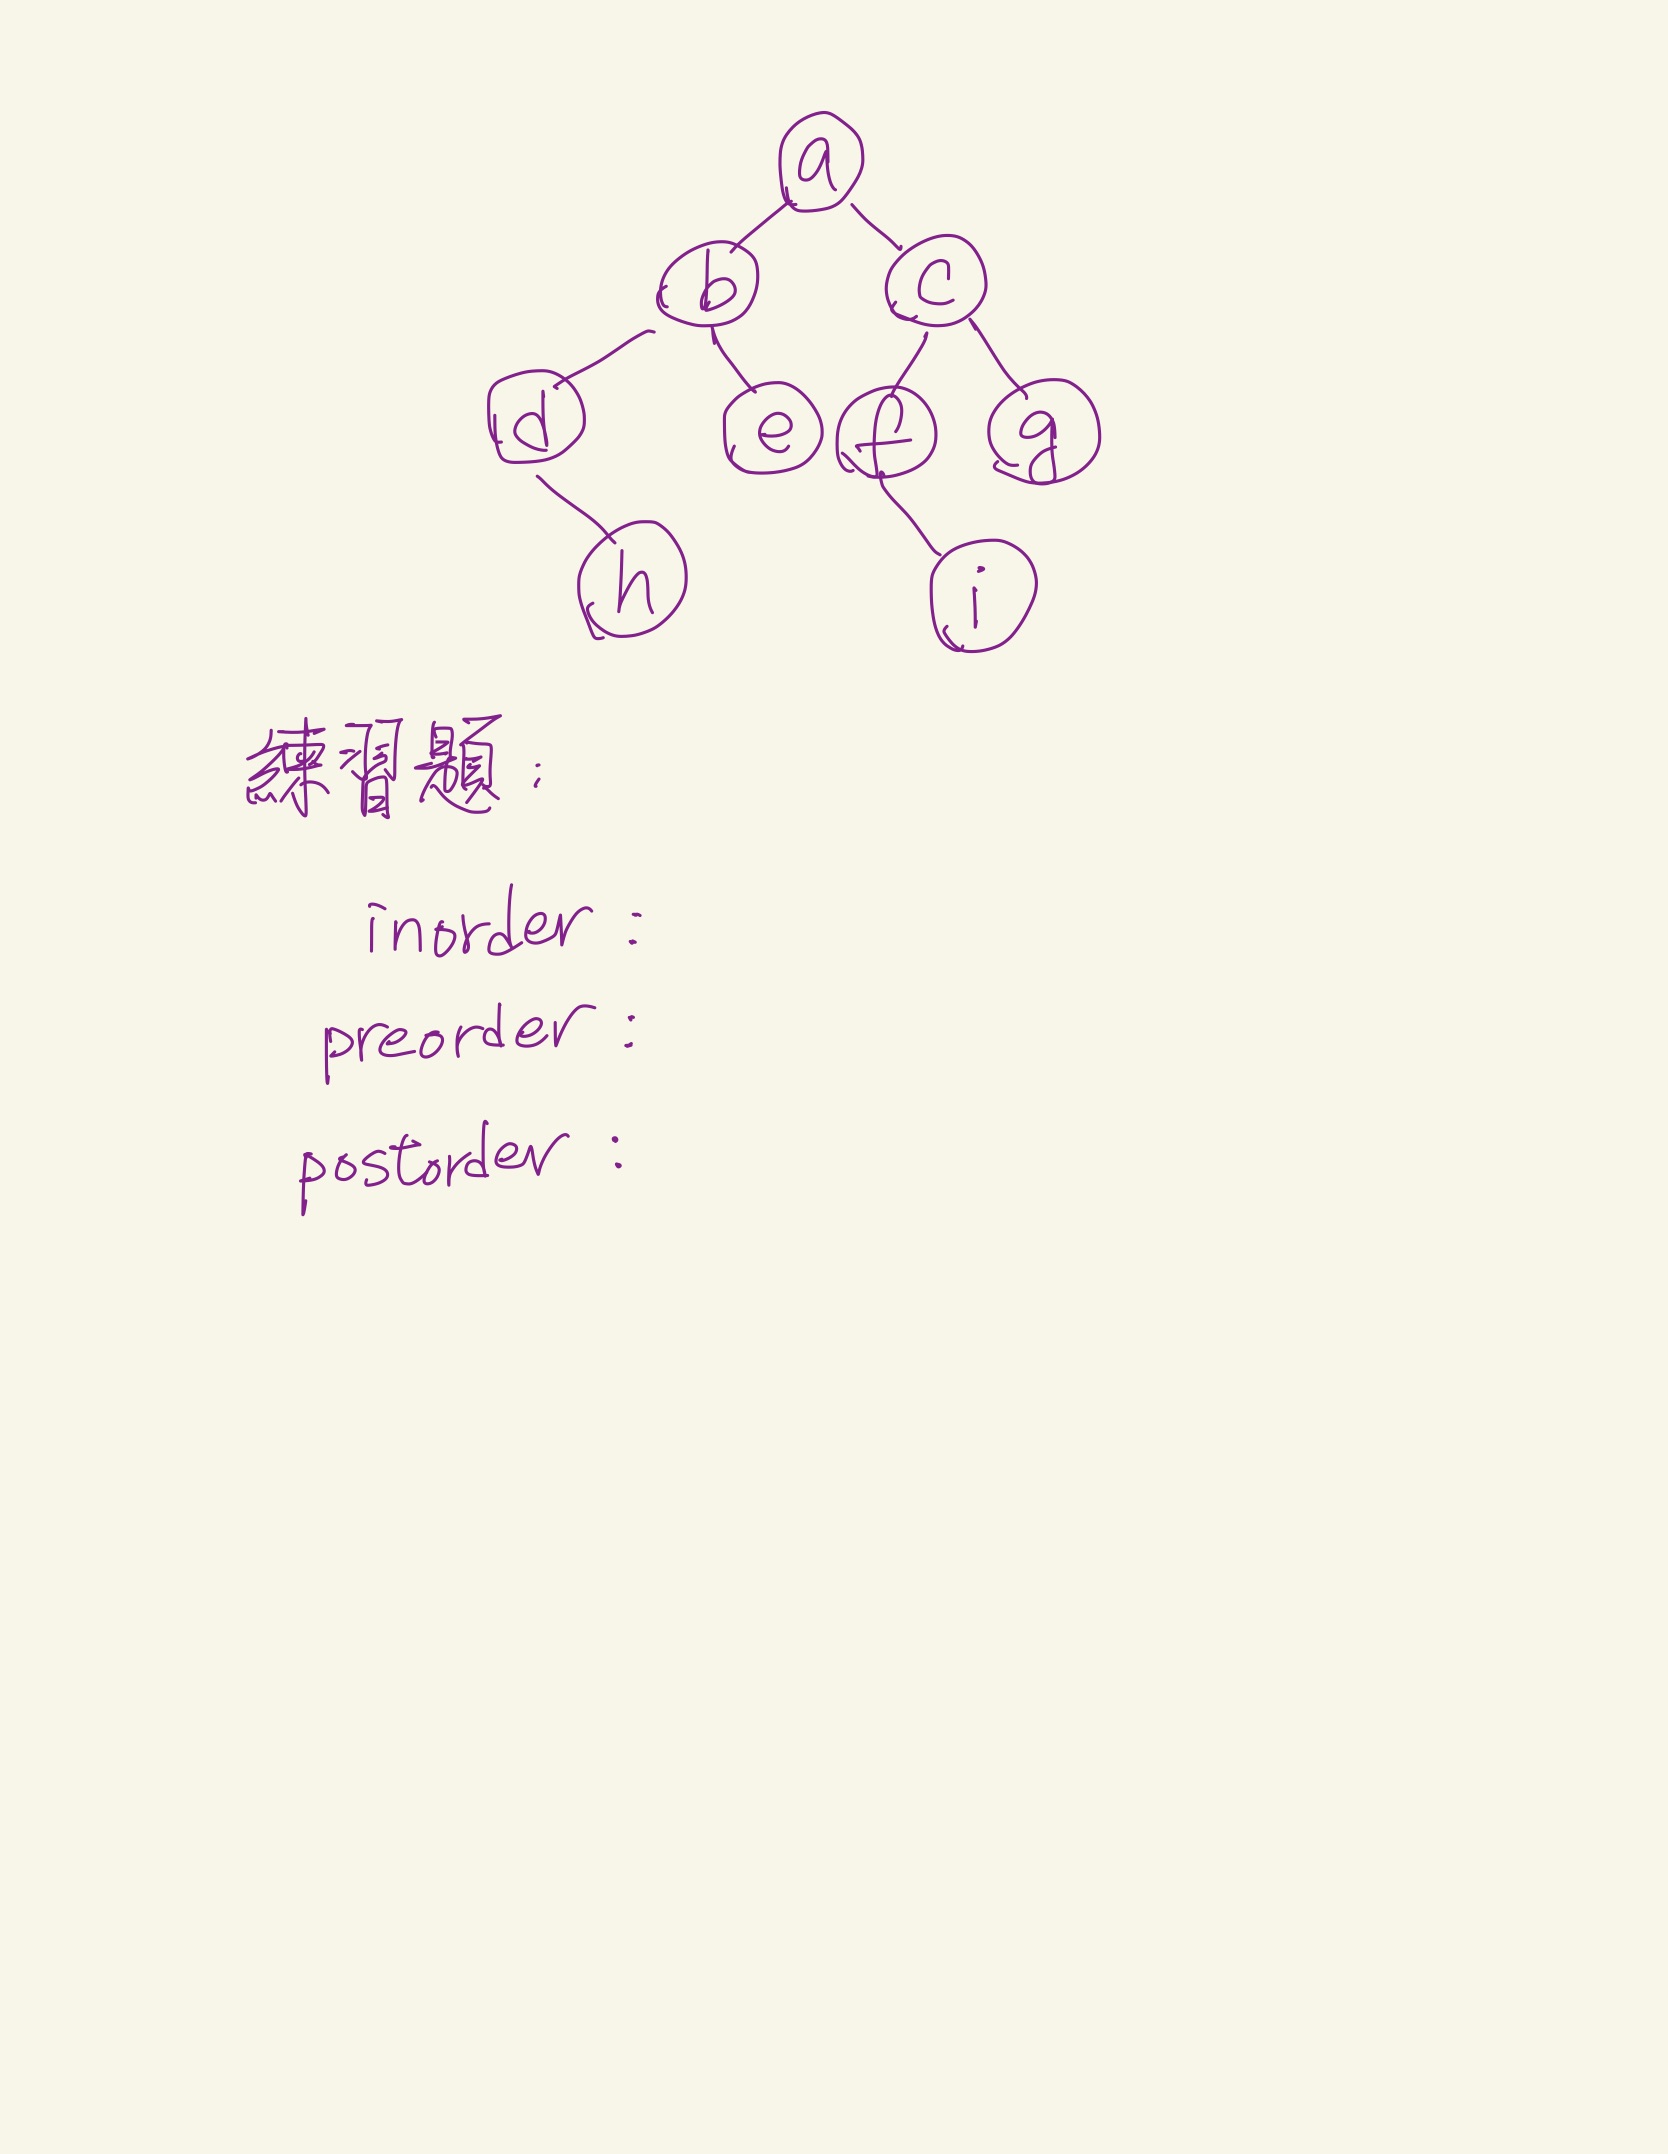 a
b c
d e f g
h i
練習題：
inorder :
preorder :
postorder :